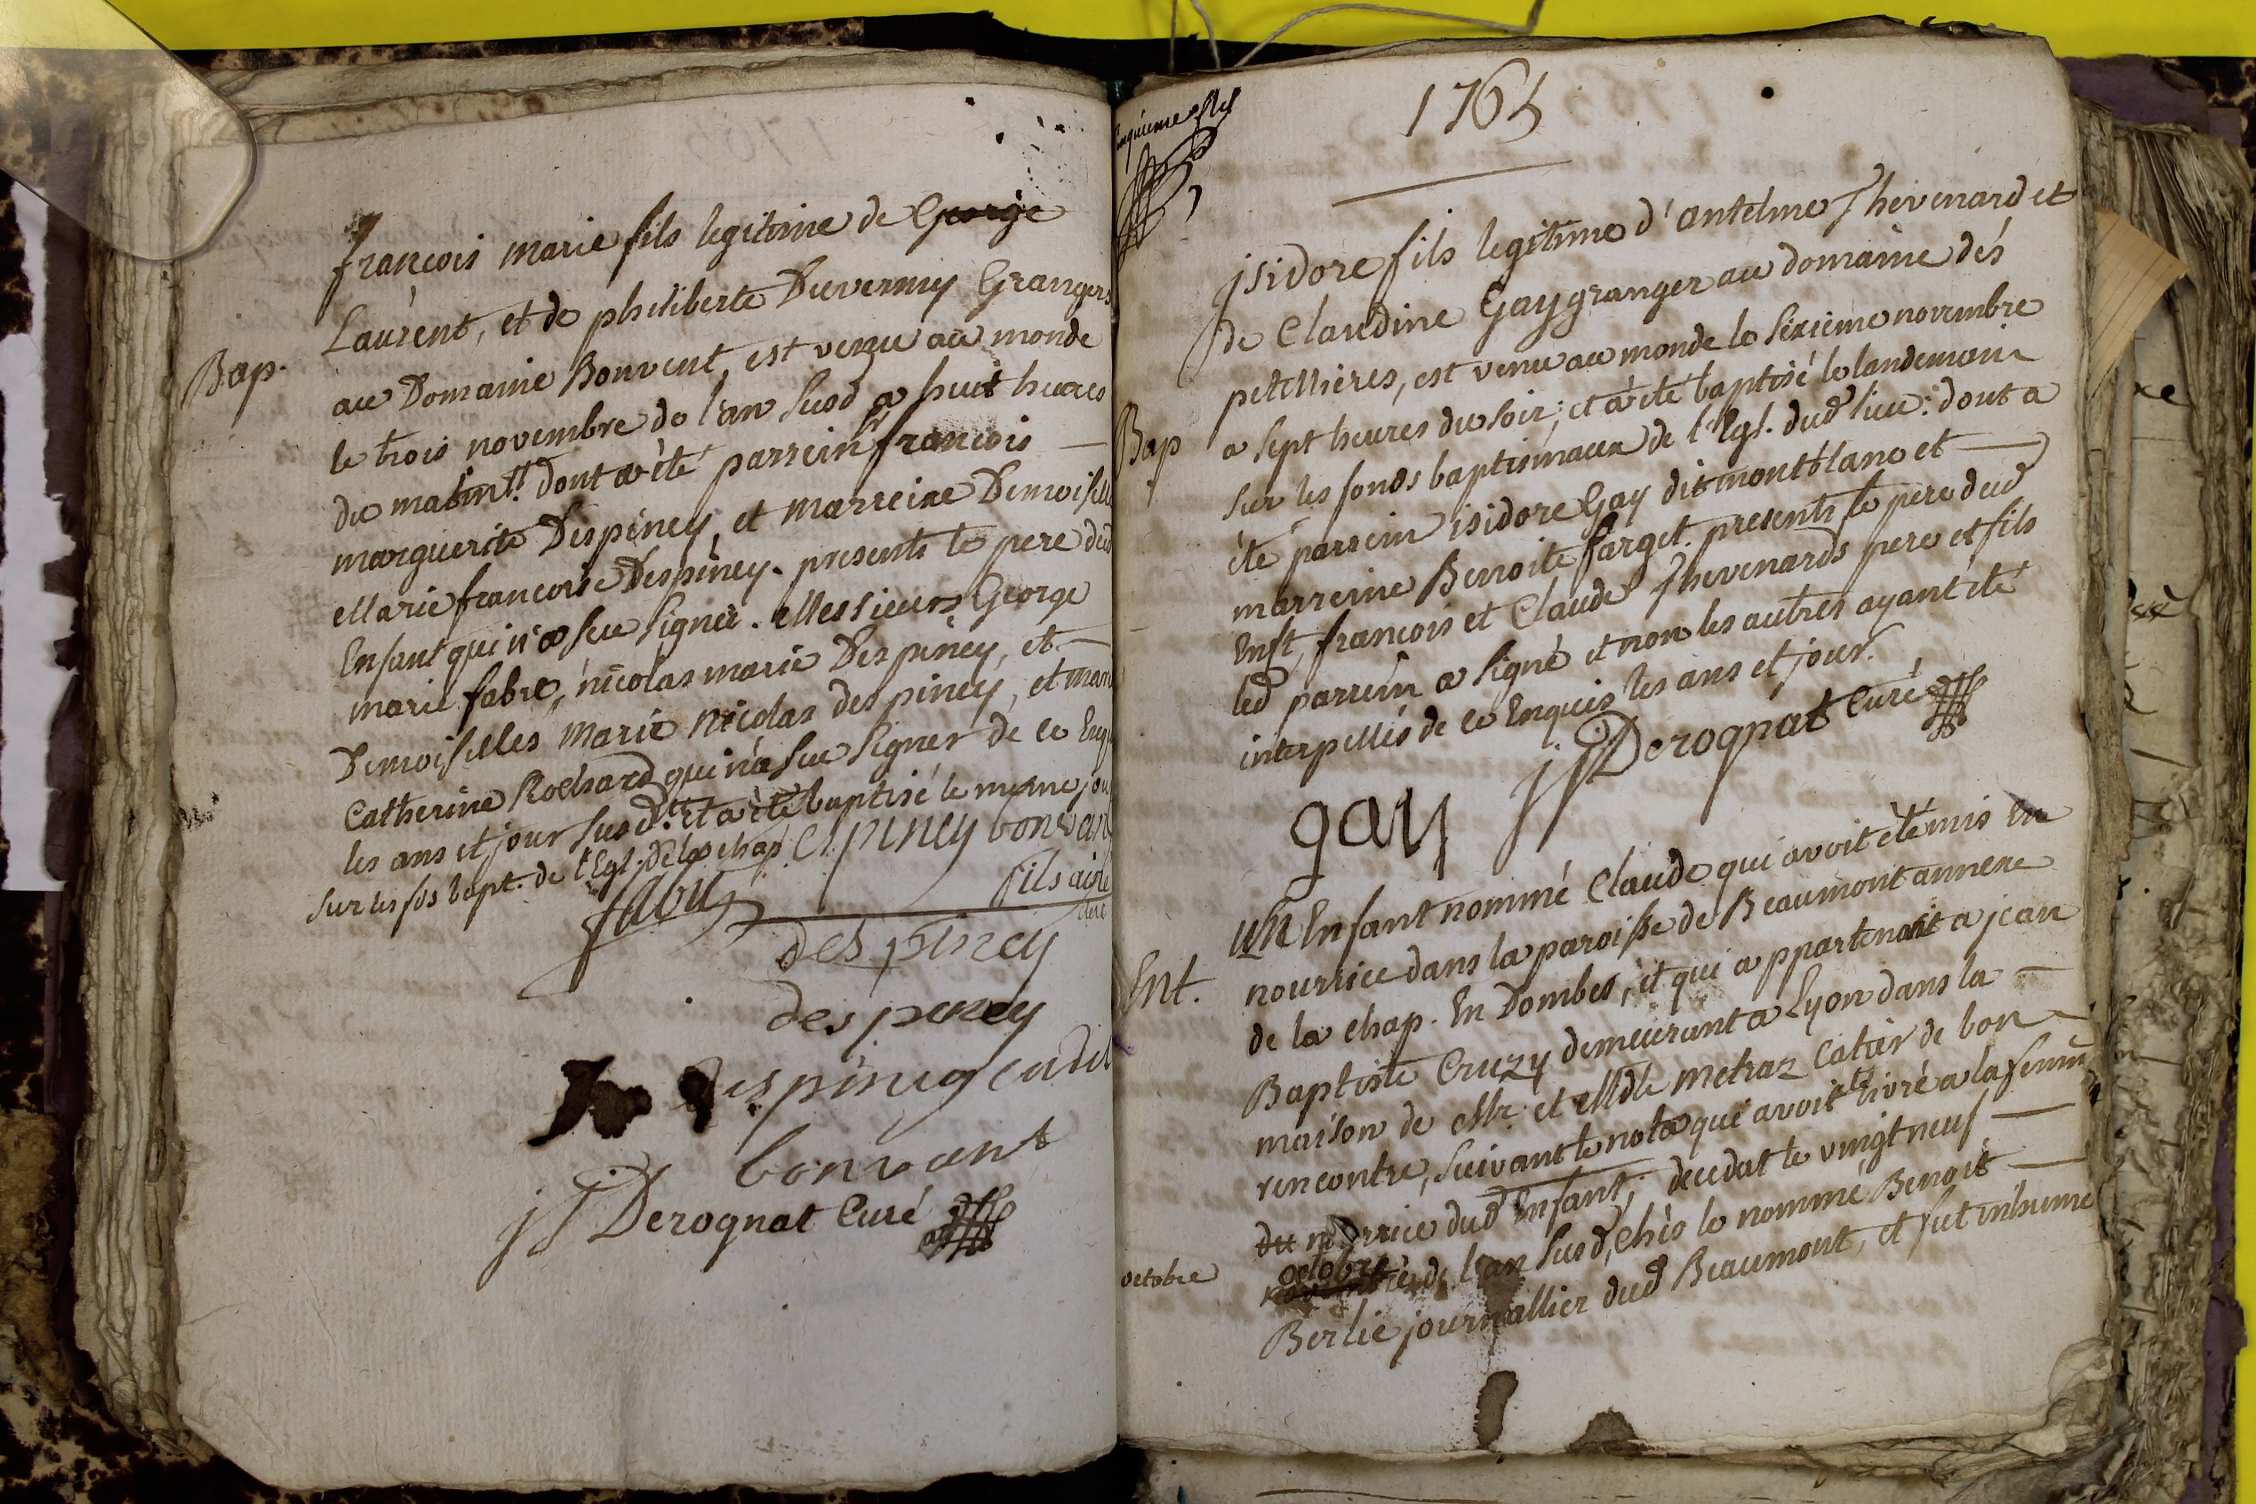 françois marie fils legitime de George
Laurent, et de philiberte Duvernay Grangers
Bap.
au Domaine Bonvent, est venu au monde
le trois novembre de l'an susd a huit heures
du matin dont a été parrein Sr françois
marguerite Despiney, et marreine Demoiselle
Marie francoise Despiney. presents le pere dud
Enfant qui n'a seu signer. Messieurs George
marie fabre, nicolas marie Despiney, et
Demoiselles marie nicolas despiney, et
Catherine Rochard qui n'a seu signer de ce Enq
les ans et jour susd. et a été baptisé le mesme jou
sur les fds bapt. de l'Egl. de la chap.
espiney bonvant
fils ainé
fabre
despiney
despiney
despiney cadet
bonvant
jf Derognat Curé
1765
Isidore fils legitime d'antelme Thevenard et
de Claudine Gay granger au domaine dés
petellières, est venu au monde le sexieme novembre
Bap
a sept heures du soir; et a été baptisé le landemain
sur les fonds baptismaux de l'Egl. dud lieu: dont a
été parrein isidore Gay dit montblanc et
marreine Benoite farget. presents le pere dud
Enft, françois et Claude Thevenards pere et fils
led parrein a signé et non les autres ayant été
interpellés de ce Enquis les ans et jour.
jf Derognat Curé
gay
un Enfant nommé Claude qui avoit été mis En
nourrice dans la paroisse de Beaumont annexe
Ent.
de la chap. En Dombes, et qui appartenoit a jean
Baptiste Cruzy demeurant a Lyon dans la
maison de Mr. et Mdle metraz Catier de bon
rencontre, suivant le nota qui avoit été livré a la femme
du nourrice dud Enfant; decedat le vingt neuf
octobre
octobre de l'an susd, chés le nommé Benoit
Berlie journallier dud Beaumont, et fut inhumé